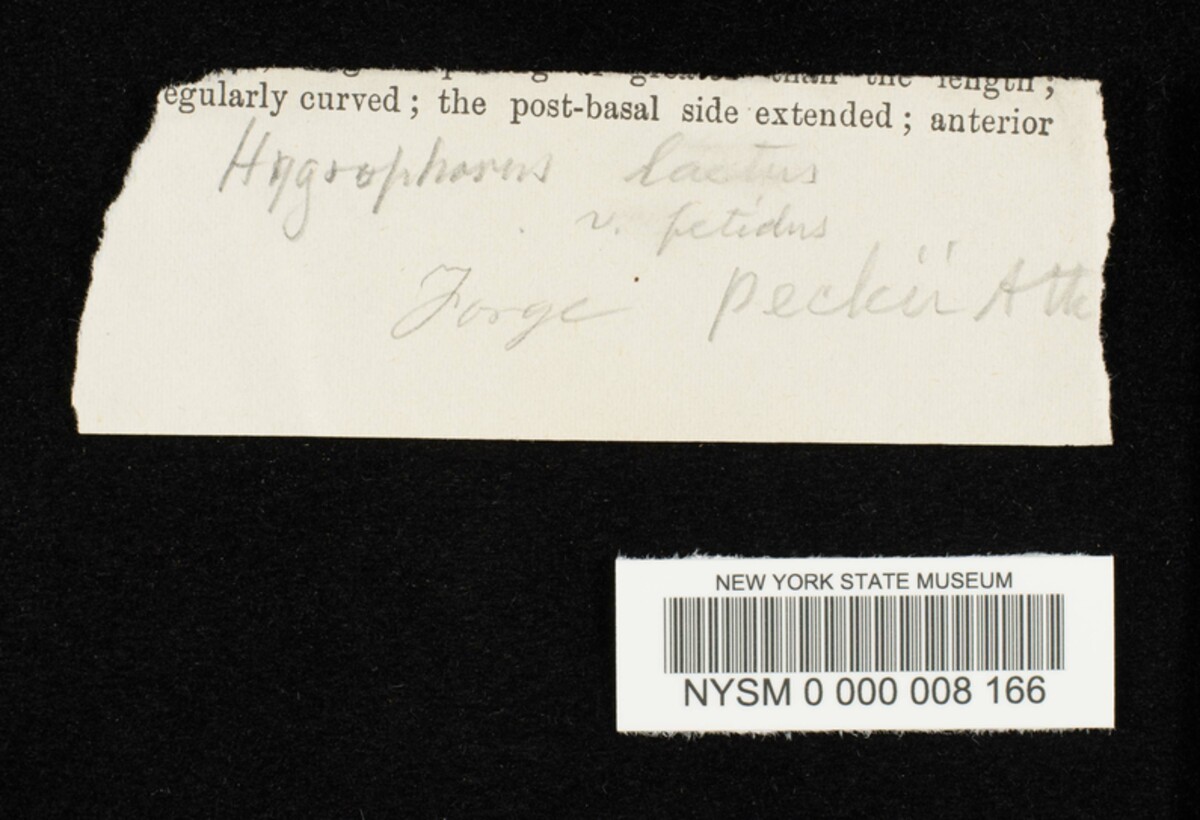 than the length;
egularly curved; the post-basal side extended; anterior
Hygrophorus laetus
v. fetidus
Forge Peckii Atk
NEW YORK STATE MUSEUM
NYSM 0 000 008 166